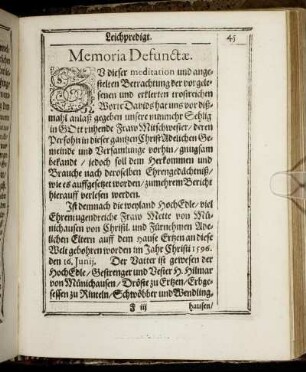 Leichpredigt.
45
Memoria Defunctæ.
ZU dieser meditation und ange-
stelten Betrachtung der vorgele-
senen und erklerten trostreichen
Worte Davids hat uns vor diß-
mahl anlaß gegeben unsere nunmehr Sehlig
in GOtt ruhende Fraw Mitschwester / deren
Persohn in dieser gantzen Christ Adelichen Ge-
meinde und Versamlunge vorhin / gnungsam
bekandt / jedoch soll dem Herkommen und
Brauche nach deroselben Ehrengedächtniß /
wie es auffgesetzet worden / zu mehrem Bericht
hierauff verlesen werden.
Ist demnach die weyland HochEdle / viel
Ehrentugendreiche Fraw Mette von Mü-
nichausen von Christl. und Fürnehmen Ade-
lichen Eltern auff dem Hause Ertzen an diese
Welt gebohren worden im Jahr Christi 1596.
den 16. Junij. Der Vatter ist gewesen der
HochEdle / Gestrenger und Vester H. Hilmar
von Münichausen / Dröste zu Ertzen / Erbge-
sessen zu Rinteln / Schwöbber und Wendling-
F iij
hausen /